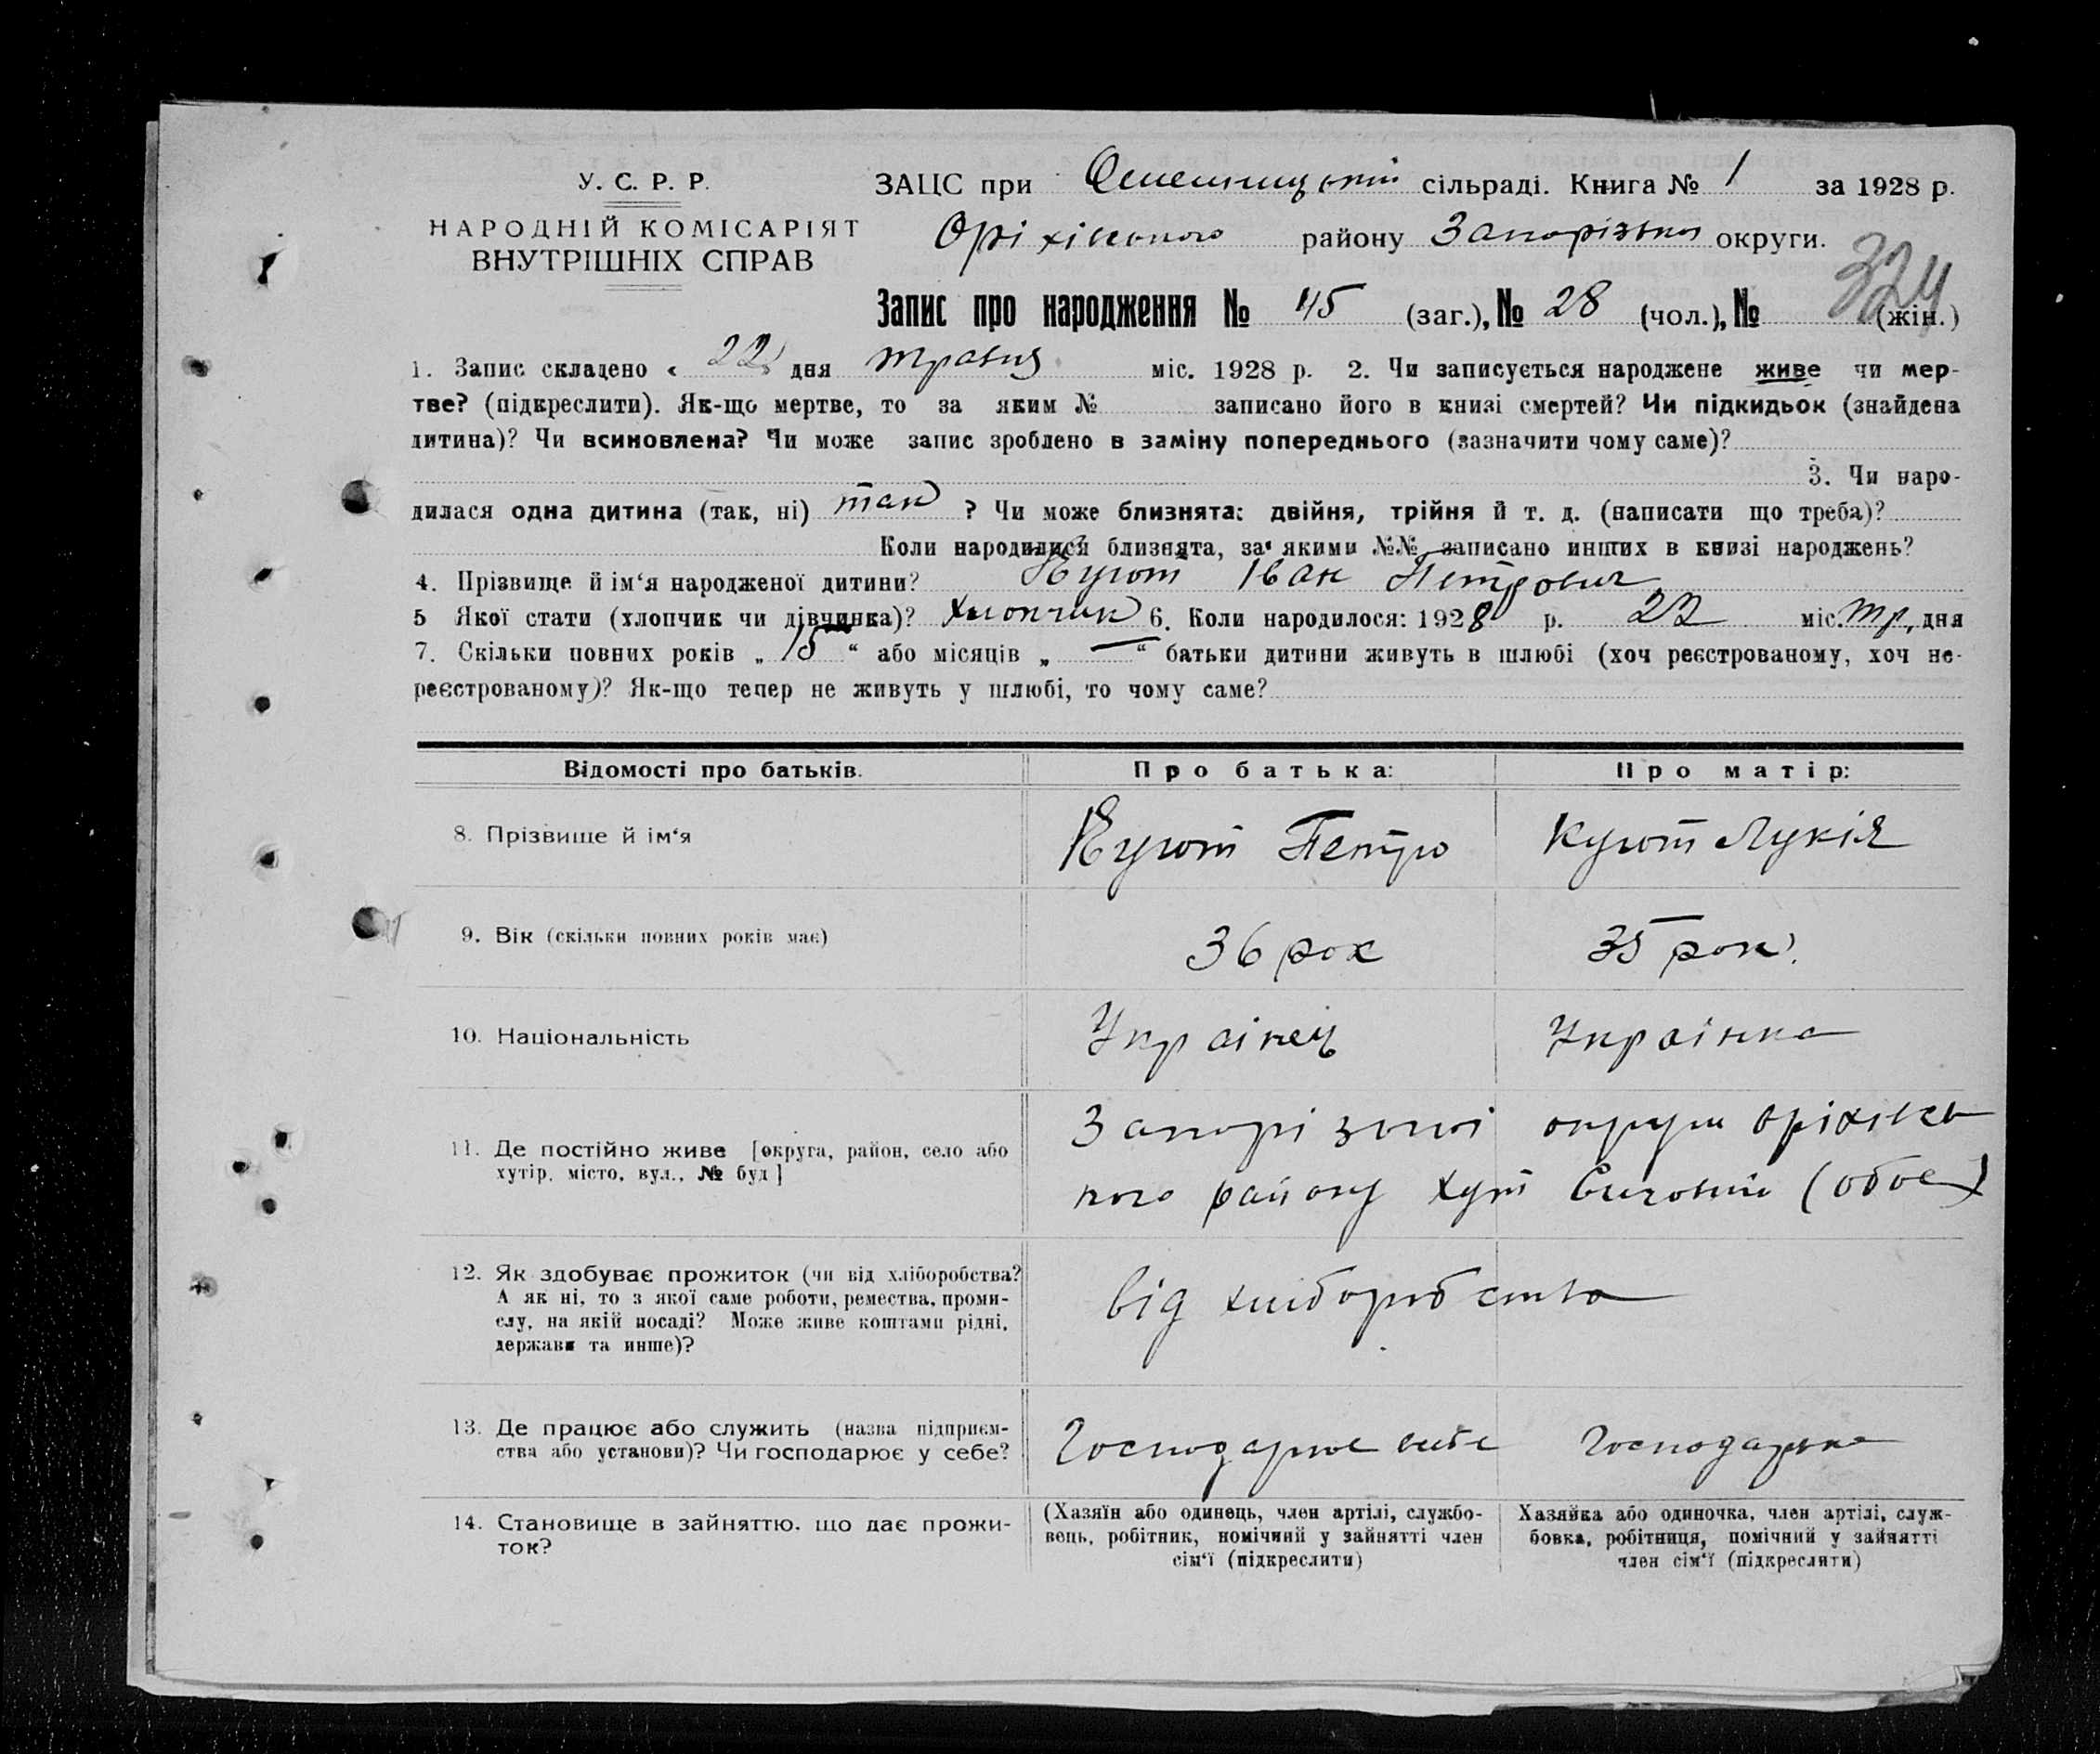 У. С. Р. Р.
НАРОДНІЙ КОМІСАРІЯТ
ВНУТРІШНІХ СПРАВ
ЗАЦС при сільраді. Книга № 1 за 1928 р.
Оріхівського району Запорізької округи.
324
Запис про народження № 45 (заг.), № 28 (чол.), № (жін.)
1. Запис складено « 22 » дня травня міс. 1928 р. 2. Чи записується народжене живе чи мер-
тве? (підкреслити). Як-що мертве, то за яким № записано його в книзі смертей? Чи підкидьок (знайдена
дитина)? Чи всиновлена? Чи може запис зроблено в заміну попереднього (зазначити чому саме)?
3. Чи наро-
дилася одна дитина (так, ні) так ? Чи може близнята: двійня, трійня й т. д. (написати що треба)?
Коли народилися близнята, за якими №№ записано инших в книзі народжень?
4. Прізвище й ім‘я народженої дитини? Іван Петрович
5 Якої стати (хлопчик чи дівчинка)? Хлопчик 6. Коли народилося: 1928 р. 22 міс. тр. дня
7. Скільки повних років „ 15 “ або місяців „ — “ батьки дитини живуть в шлюбі (хоч реєстрованому, хоч не-
реєстрованому)? Як-що тепер не живуть у шлюбі, то чому саме?
Відомості про батьків. Про батька: Про матір:
8. Прізвище й ім‘я Петро Лукія
9. Вік (скільки повних років має) 36 рок 35 рок.
10. Національність Українец Українка
11. Де постійно живе [округа, район, село або
хутір, місто, вул., № буд]
Запорізької округи Оріхівсь
кого району Хут (обоє)
12. Як здобуває прожиток (чи від хліборобства?
А як ні, то з якої саме роботи, ремества, проми-
слу, на якій посаді? Може живе коштами рідні,
держави та инше)?
від хліборобства
13. Де працює або служить (назва підприєм-
ства або установи)? Чи господарює у себе?
Господарює Господарька
14. Становище в зайняттю, що дає прожи-
ток?
(Хазяїн або одинець, член артілі, службо-
вець, робітник, помічний у зайнятті член
сім‘ї (підкреслити)
Хазяйка або одиночка, член артілі, служ-
бовка, робітниця, помічний у зайнятті
член сім‘ї (підкреслити)